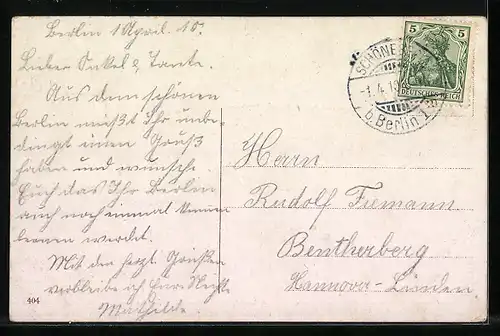 Berlin 1 April. 10.
Lieber Onkel & Tante.
Aus dem schönen
Berlin müßt Ihr unbe-
dingt einen Gruß
haben und wünsche
Euch das Ihr Berlin
auch noch einmal kennen
lernen werdet.
Mit den herzl. Grüßen
verbleibe ich Eure Nichte
Mathilde.
404
SCHÖNEB
-1.4.19
b. Berlin 1
5 5
DEUTSCHES REICH
Herrn
Rudolf Tiemann
Bentherberg
Hannover-Linden